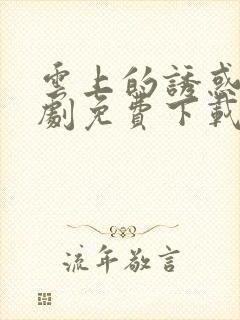 雲上的誘惑
劇免費下載
流年敬言